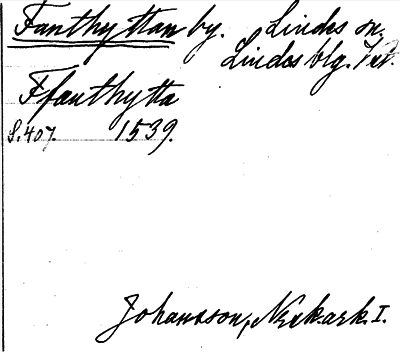 Fanthyttan by. Lindes sn.
Lindes blg. Vstm.
Ffanthytta
S. 407. 1539.
Johansson, Noraskark. I.